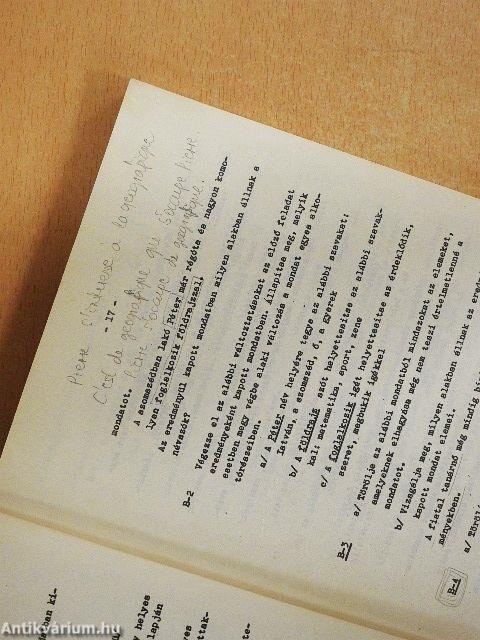 Pierre s'intéresse à la géographie
- 17 -
C'est de géographie que s'occupe Pierre.
Pierre s'occupe de géographie.
mondatot.
A szomszédban lakó Péter már régóta és nagyon komo-
lyan foglalkozik földrajzzal.
Az eredményül kapott mondatban milyen alakban állnak a
névszók?
B-2
Végezze el az alábbi változtatásokat az előző feladat
eredményeként kapott mondatban, állapítsa meg, melyik
esetben megy végbe alaki változás a mondat egyes alko-
tórészeiben.
a/ A Péter név helyére tegye az alábbi szavakat:
István, a szomszéd, ő, a gyerek
b/ A földrajz szót helyettesítse az alábbi szavak-
kal: matematika, sport, zene
c/ A foglalkozik igét helyettesítse az érdeklődik,
szeret, megbukik igékkel
B-3
a/ Törölje az alábbi mondatból mindazokat az elemeket,
amelyeknek elhagyása még nem teszi értelmetlenné a
mondatot.
b/ Vizsgálja meg, milyen alakban állnak az ered
kapott mondat elemei.
A fiatal tanárnő még mindig
ményekben.
B-4
a/ Törölje
ban ki-
y helyes
lapján
ttak-
Antikvárium.hu